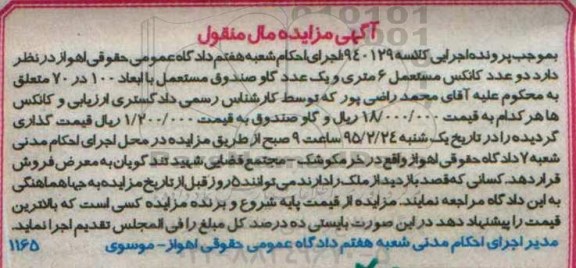 آگهی مزایده مال منقول
بموجب پرونده اجرایی کلاسه ۹۴۰۱۲۹ اجرای احکام شعبه هفتم دادگاه عمومی حقوقی اهواز در نظر
دارد دو عدد کانکس مستعمل ۶ متری و یک عدد گاو صندوق مستعمل با ابعاد ۱۰۰ در ۷۰ متعلق
به محکوم علیه آقای محمد راضی پور که توسط کارشناس رسمی دادگستری ارزیابی و کانکس
ها هر کدام به قیمت ۱۸/۰۰۰/۰۰۰ ریال و گاو صندوق به قیمت ۱/۲۰۰/۰۰۰ ریال قیمت گذاری
گردیده را در تاریخ یک شنبه ۹۵/۲/۲۶ ساعت ۹ صبح از طریق مزایده در محل اجرای احکام مدنی
شعبه ۷ دادگاه حقوقی اهواز واقع در خرمکوشک - مجتمع قضایی شهید تندگویان به معرض فروش
قرار دهد. کسانی که قصد بازدید از ملک را دارند می توانند ۵ روز قبل از تاریخ مزایده به جهت هماهنگی
به این دادگاه مراجعه نمایند. مزایده از قیمت پایه شروع و برنده مزایده کسی است که بالاترین
قیمت را پیشنهاد دهد در این صورت بایستی ده درصد کل مبلغ را فی المجلس تقدیم اجرا نماید.
مدیر اجرای احکام مدنی شعبه هفتم دادگاه عمومی حقوقی اهواز - موسوی ۱۱۶۵